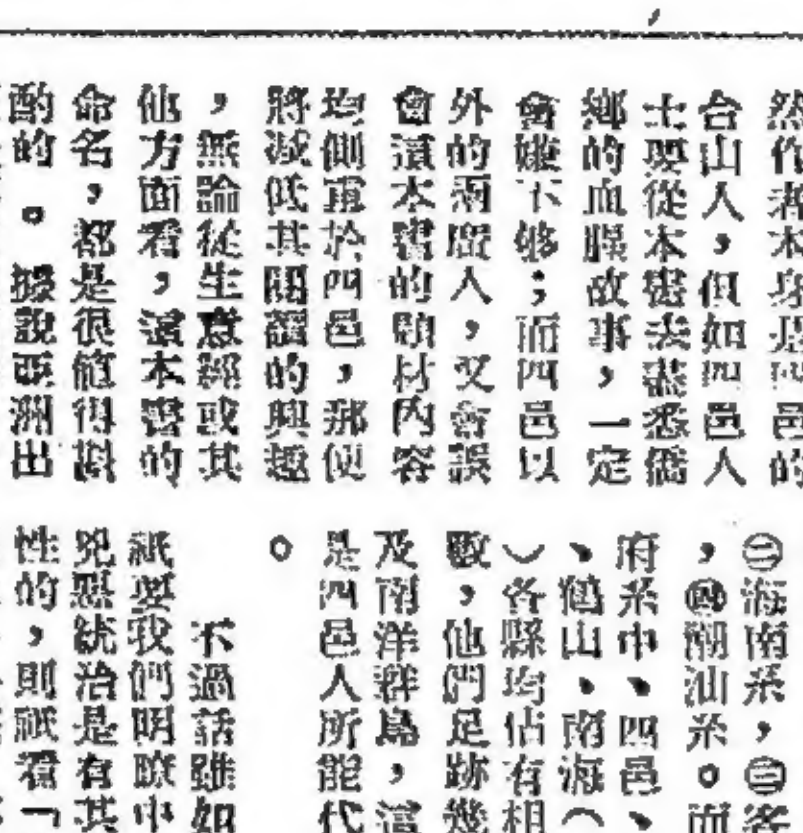 然作者本身是四邑的
台山人，但如四邑人
士要從本書去盡悉僑
鄉的血腥故事，一定
會嫌不够；而四邑以
外的兩廣人，又會誤
會這本書的題材內容
均側重於四邑，那便
將減低其閱讀的興趣
，無論從生意經或其
他方面看，這本書的
命名，都是很值得斟
酌的。據說亞洲出
㊁海南系，㊂客
，㊃潮汕系。而
府系中、四邑、
、鶴山、南海（
）各縣均佔有相
數，他們足跡幾
及南洋群島，這
是四邑人所能代
。
不過話雖如
祇要我們明瞭中
兇惡統治是有其
性的，則祇看「